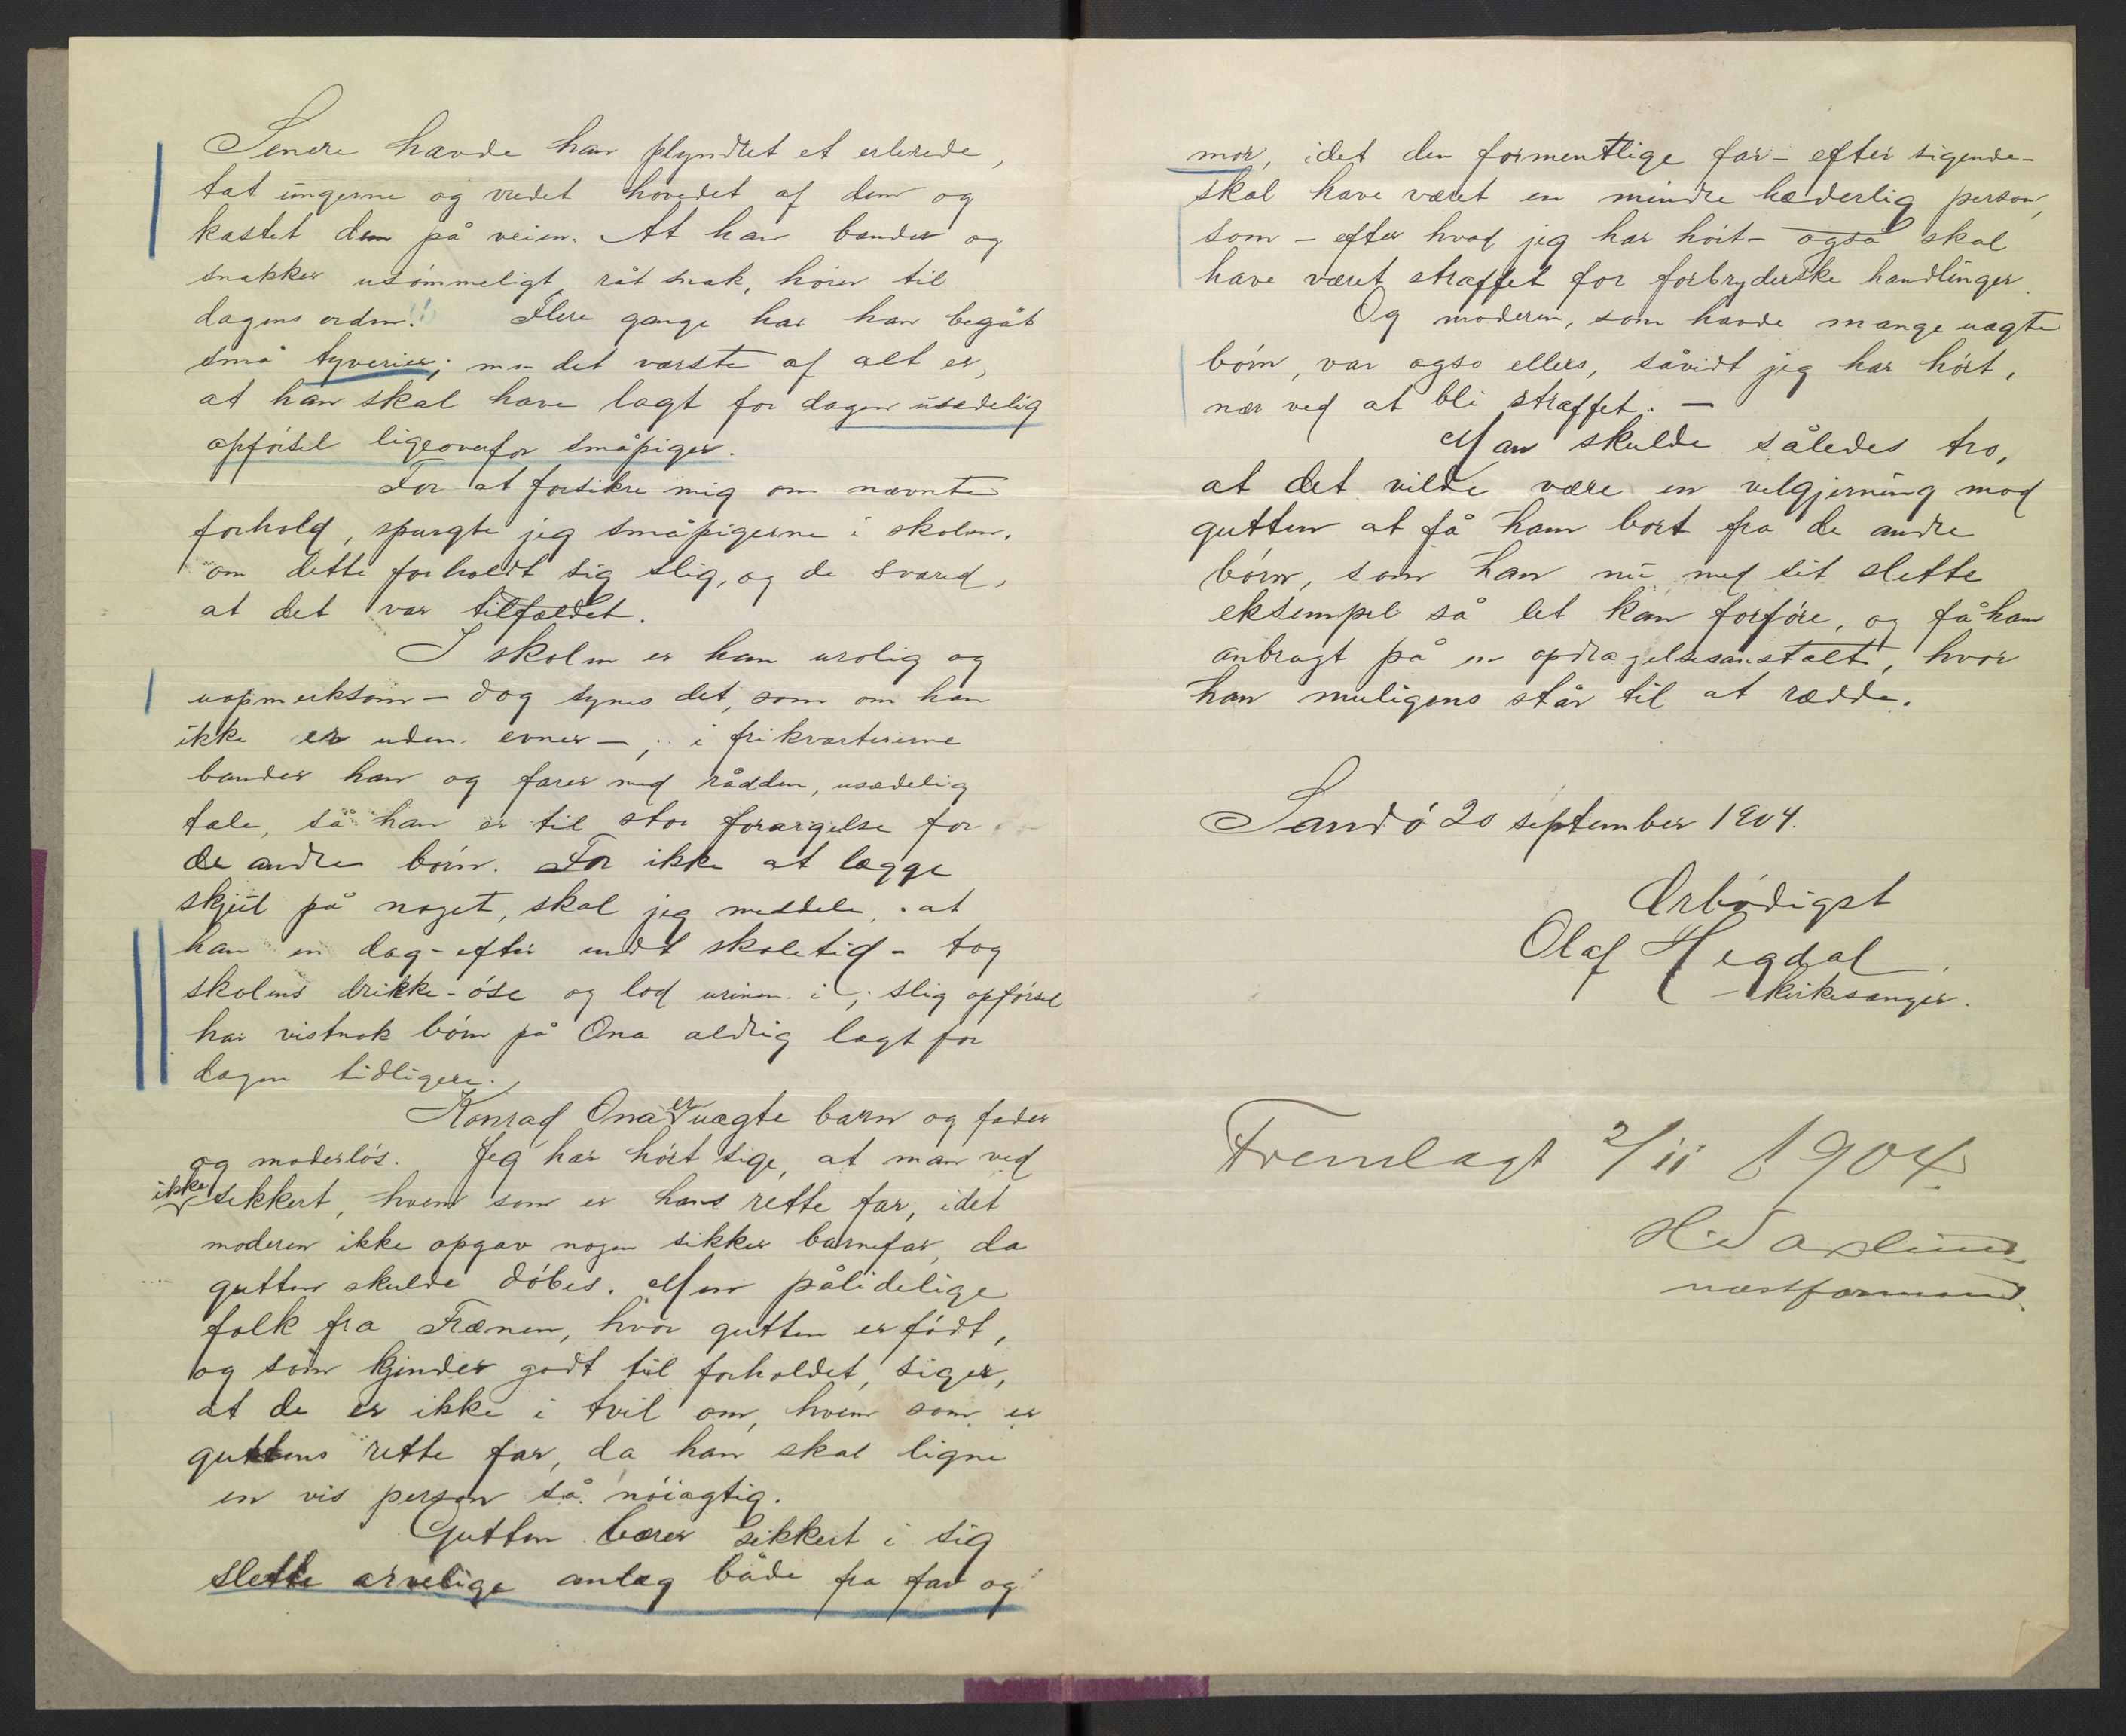 Senere havde han plyndret et erlerede,
tat ungerne og vredet hovedet af dem og
kastet dem på veien. At han bander og
snakker usømmeligt, råt snak, hører til
dagens orden!! Flere gange har han begåt
små tyverier; men det værste af alt er,
at han skal have lagt for dagen usædelig
opførsel ligeoverfor småpiger.
For at forsikre mig om nævnte
forhold, spurgte jeg småpigerne i skolen,
om dette forholdt sig slig, og de svared,
at det var tilfældet.
I skolen er han urolig og
uopmerksom – dog synes det, som om han
ikke er uden evner –; i frikvartererne
bander han og farer med rådden, usædelig
tale, så han er til stor forargelse for
de andre børn. For ikke at lægge
skjul på noget, skal jeg meddele, at
han en dag – efter endt skoletid – tog
skolens drikke-øse og lod urinen i; slig opførsel
har vistnok børn på Ona aldrig lagt for
dagen tidligere.
Konrad Ona er uægte barn og fader
og moderløs. Jeg har hørt sige, at man ved
ikke sikkert, hvem som er hans rette far, idet
moderen ikke opgav nogen sikker barnefar, da
gutten skulde døbes. Men pålidelige
folk fra Frænen, hvor gutten er født,
og som kjender godt til forholdet, siger,
at de er ikke i tvil om, hvem som er
guttens rette far, da han skal ligne
en vis person så nøiagtig.
Gutten bærer sikkert i sig
slette arvelige anlæg både fra far og
mor, idet den formentlige far – efter sigende –
skal have været en mindre hæderlig person,
som – efter hvad jeg har hørt – også skal
have været straffet for forbryderske handlinger.
Og moderen, som havde mange uægte
børn, var ogso ellers, såvidt jeg har hørt,
nær ved at bli straffet. –
Man skulde således tro,
at det vilde være en velgjerning mod
gutten at få ham bort fra de andre
børn, som han nu med sit slette
eksempel så let kan forføre, og få ham
anbragt på en opdragelsesanstalt, hvor
han muligens står til at rædde.
Sandø 20 september 1904.
Ærbødigst
Olaf Hegdal
kirkesanger.
Fremlagt 2/11 1904.
næstformand.